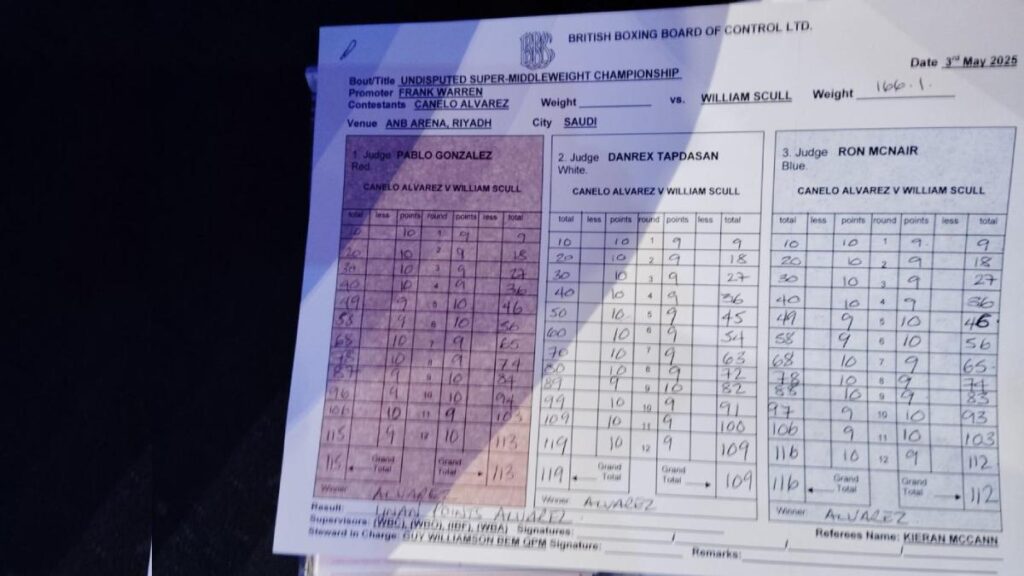 BRITISH BOXING BOARD OF CONTROL LTD.
Date 3rd May 2025
Bout/Title UNDISPUTED SUPER-MIDDLEWEIGHT CHAMPIONSHIP
Promoter FRANK WARREN
Contestants CANELO ALVAREZ Weight vs. WILLIAM SCULL Weight 166.1.
Venue ANB ARENA, RIYADH City SAUDI
1. Judge PABLO GONZALEZ
Red.
CANELO ALVAREZ V WILLIAM SCULL
total less points round points less total
10 10 1 9 9
20 10 2 9 18
30 10 3 9 27
40 10 4 9 36
49 9 5 10 46
58 9 6 10 56
68 10 7 9 65
78 10 8 9 74
87 9 9 10 84
96 9 10 10 94
106 10 11 9 103
115 9 12 10 113
115 Grand Total Grand Total 113
Winner ALVAREZ
2. Judge DANREX TAPDASAN
White.
CANELO ALVAREZ V WILLIAM SCULL
total less points round points less total
10 10 1 9 9
20 10 2 9 18
30 10 3 9 27
40 10 4 9 36
50 10 5 9 45
60 10 6 9 54
70 10 7 9 63
80 10 8 9 72
89 9 9 10 82
99 10 10 9 91
109 10 11 9 100
119 10 12 9 109
119 Grand Total Grand Total 109
Winner ALVAREZ
3. Judge RON MCNAIR
Blue.
CANELO ALVAREZ V WILLIAM SCULL
total less points round points less total
10 10 1 9 9
20 10 2 9 18
30 10 3 9 27
40 10 4 9 36
49 9 5 10 46
58 9 6 10 56
68 10 7 9 65
78 10 8 9 74
88 10 9 9 83
97 9 10 10 93
106 9 11 10 103
116 10 12 9 112
116 Grand Total Grand Total 112
Winner ALVAREZ
Result: UNAN POINTS ALVAREZ
Supervisors: (WBC), (WBO), (IBF), (WBA) Signatures: Referees Name: KIERAN MCCANN
Steward in Charge: GUY WILLIAMSON BEM QPM Signature: Remarks: